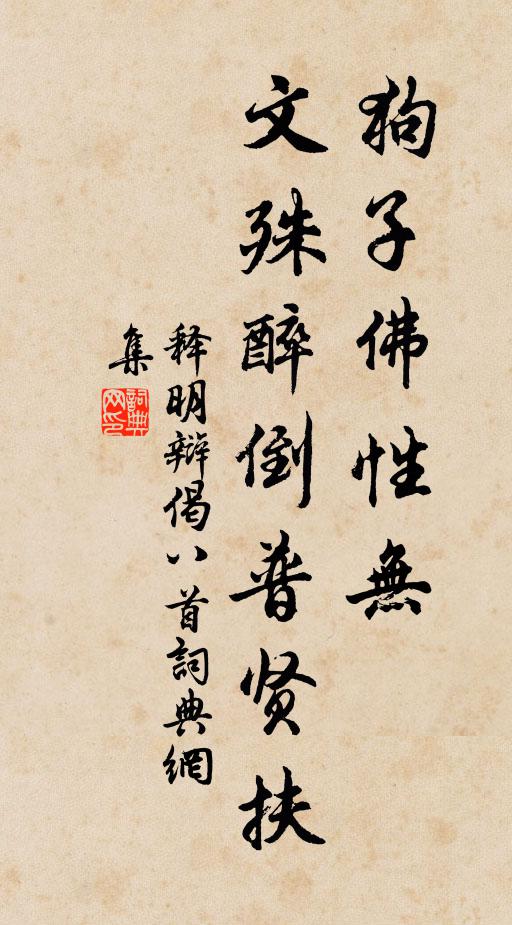 狗子佛性無
文殊醉倒普贤扶
释明辩偈八首詞典網
集
詞典
网印